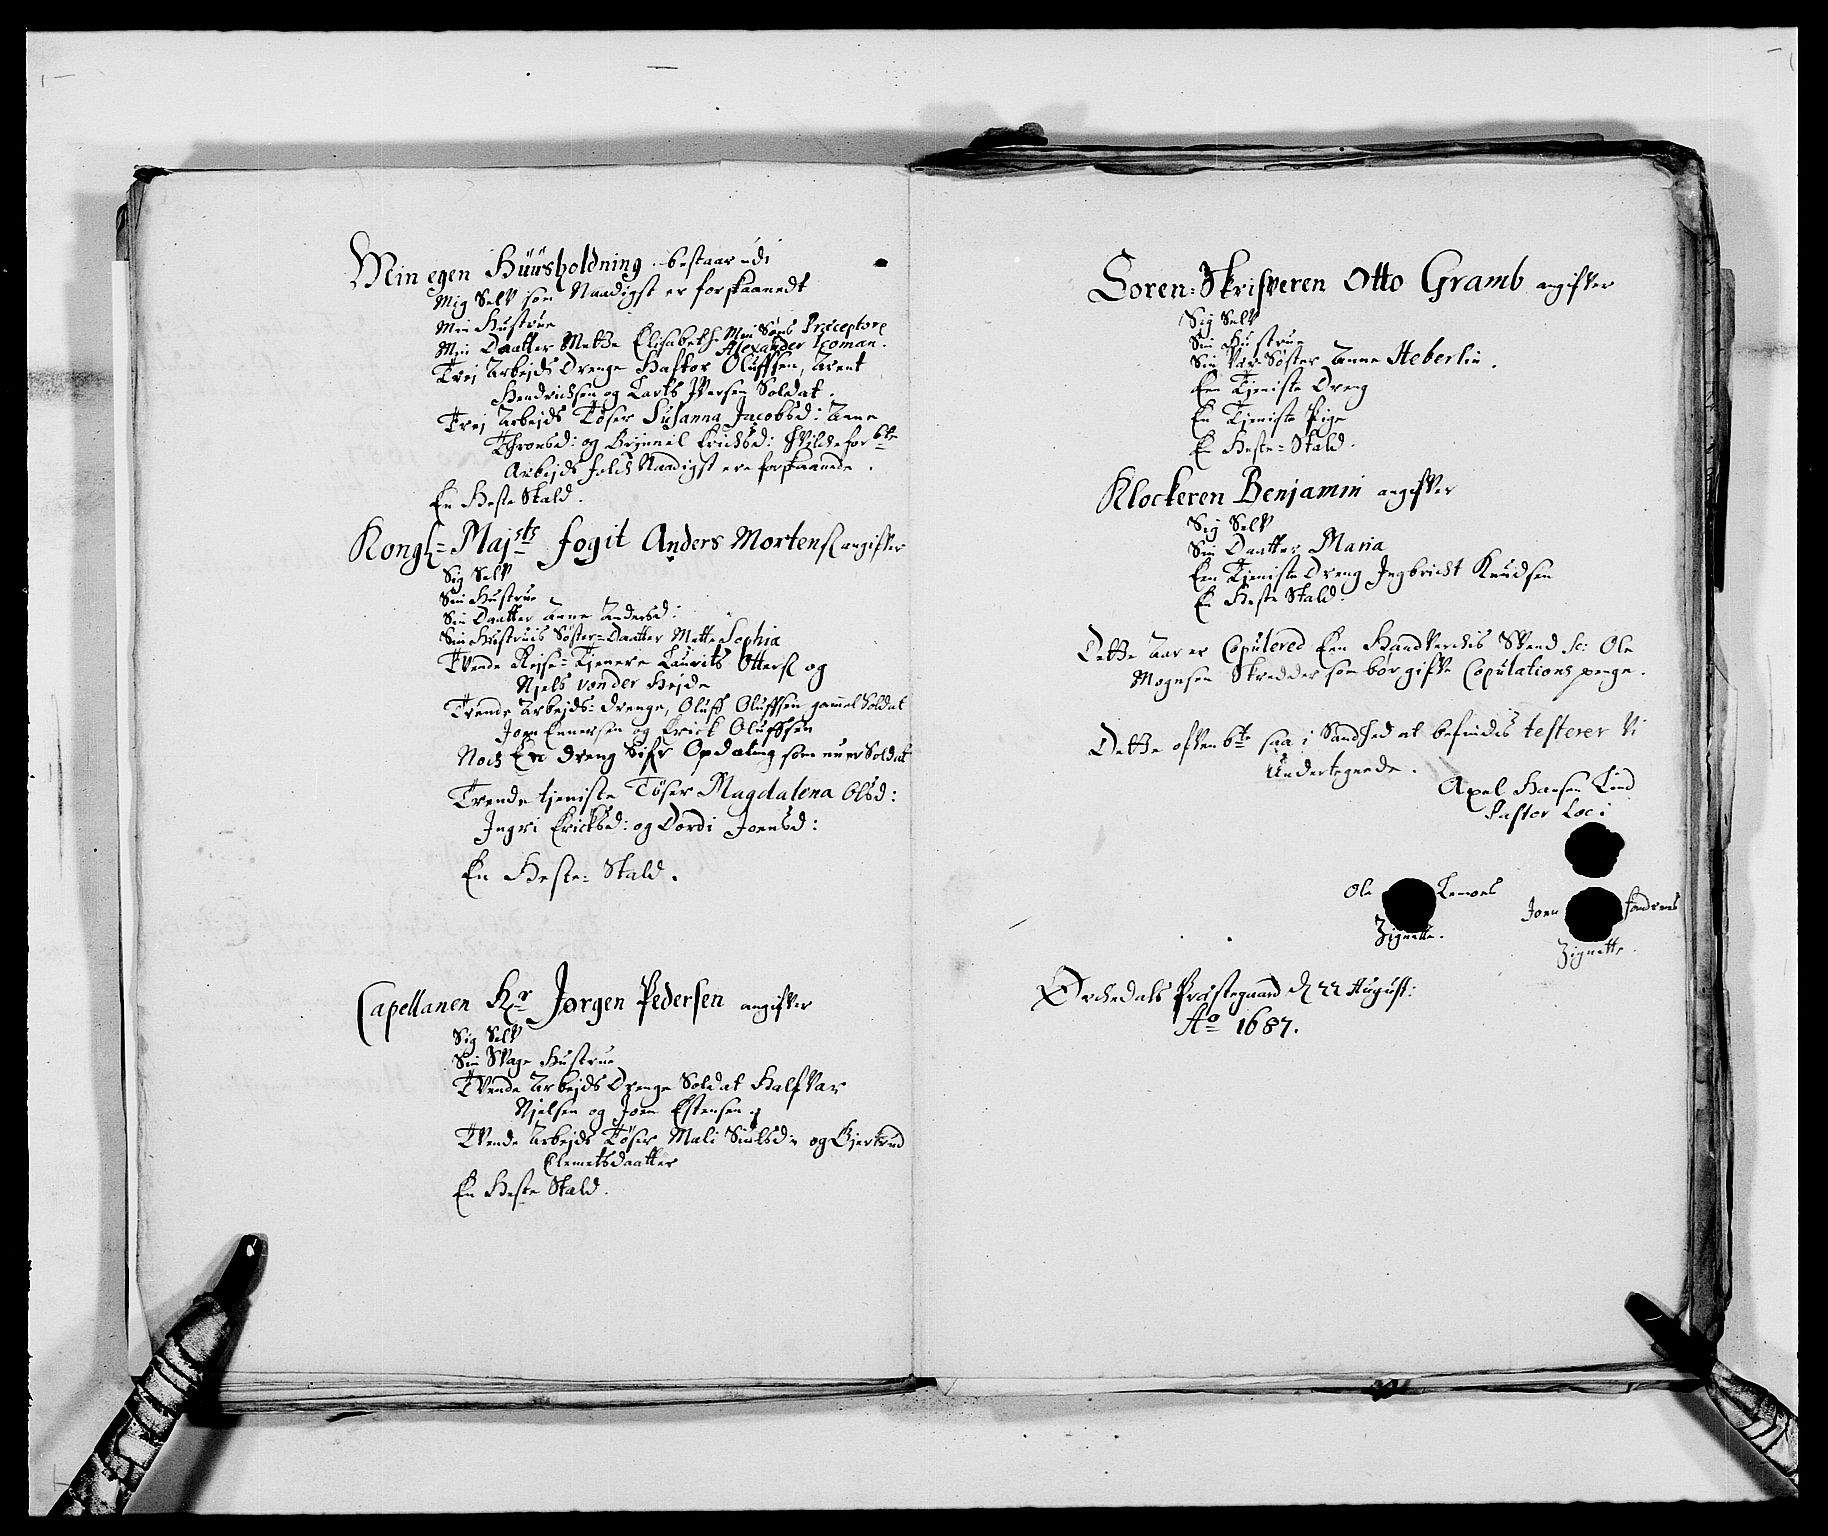 Min egen Huusholdning bestaar udi
Mig Selv som Naadigst er forskaanedt
Min Hustrue
Min Daatter Mette Elisabeth Min Søns Præceptore
Alexander
Trej Arbejds Drenge Hastor Oluffsen, Arent
Hendrichsen og Lars Iversen Soldat.
Trej Arbejds Tøser Susanna Jacobsd: Anne
Thronsd: og Gunnil Erichsd: hvilche for bte
Arbejds folch Naadigst ere forskaanede.
En Heste Stald.
Kongl= Majsts fogit Anders Mortensl angifver
Sig Selv
Sin Hustrue
Sin Daatter Anne Andersd:
Sin Hustruis Søster=Daatter Mette Sophia
Tvende Rejse=Tjenere Laurits Ottersl og
Njels von der Hejde
Trende Arbejds: drenge, Oluff Oluffsen gammel Soldat
Joen Ennersen og Erick Oluffsen
Noch En dreng Sifr Opdaling som nu er Soldat
Trende tjeniste Tøser Magdalena Olsd:
Ingri Ericksd: og Dordi Joensd:
En Heste= Stald.
Capellanen Hr Jørgen Pedersen angifver
Sig Selv
Sin Svage Hustrue
Tvende Arbejds Drenge Soldat Halfvar
Njelsen og Joen Estensen
Tvende Arbejds Tøser Mali Siulsd: og Gjertrud
Clemetsdaatter
En Heste Stald.
Soren=Skrifveren Otto Gramb angifver
Sig Selv
Sin Hustrue
Sin Vær Søster Anne Heberlin.
Een Tjeniste Dreng
En Tjeniste Pige
En Heste=Stald.
Klockeren Benjamin angifver
Sig Selv
Sin Daatter Maria
Een Tjeniste Dreng Ingbricht Knudsen
En Heste Stald.
Dette Aar er Copulered Een Handverchs Svend sc: Ole
Mogensen Skredder som bør gifve Copulations penge.
Dette ofven bte saa i Sandhed at befindis testerer Vi
Undertegnede.
Axel Hansen Lind
Pastor Loci
Ole Lemoes
Zignette.
Joen
Zignette.
Ørchedals Præstegaard d 22 August:
Ao 1687.